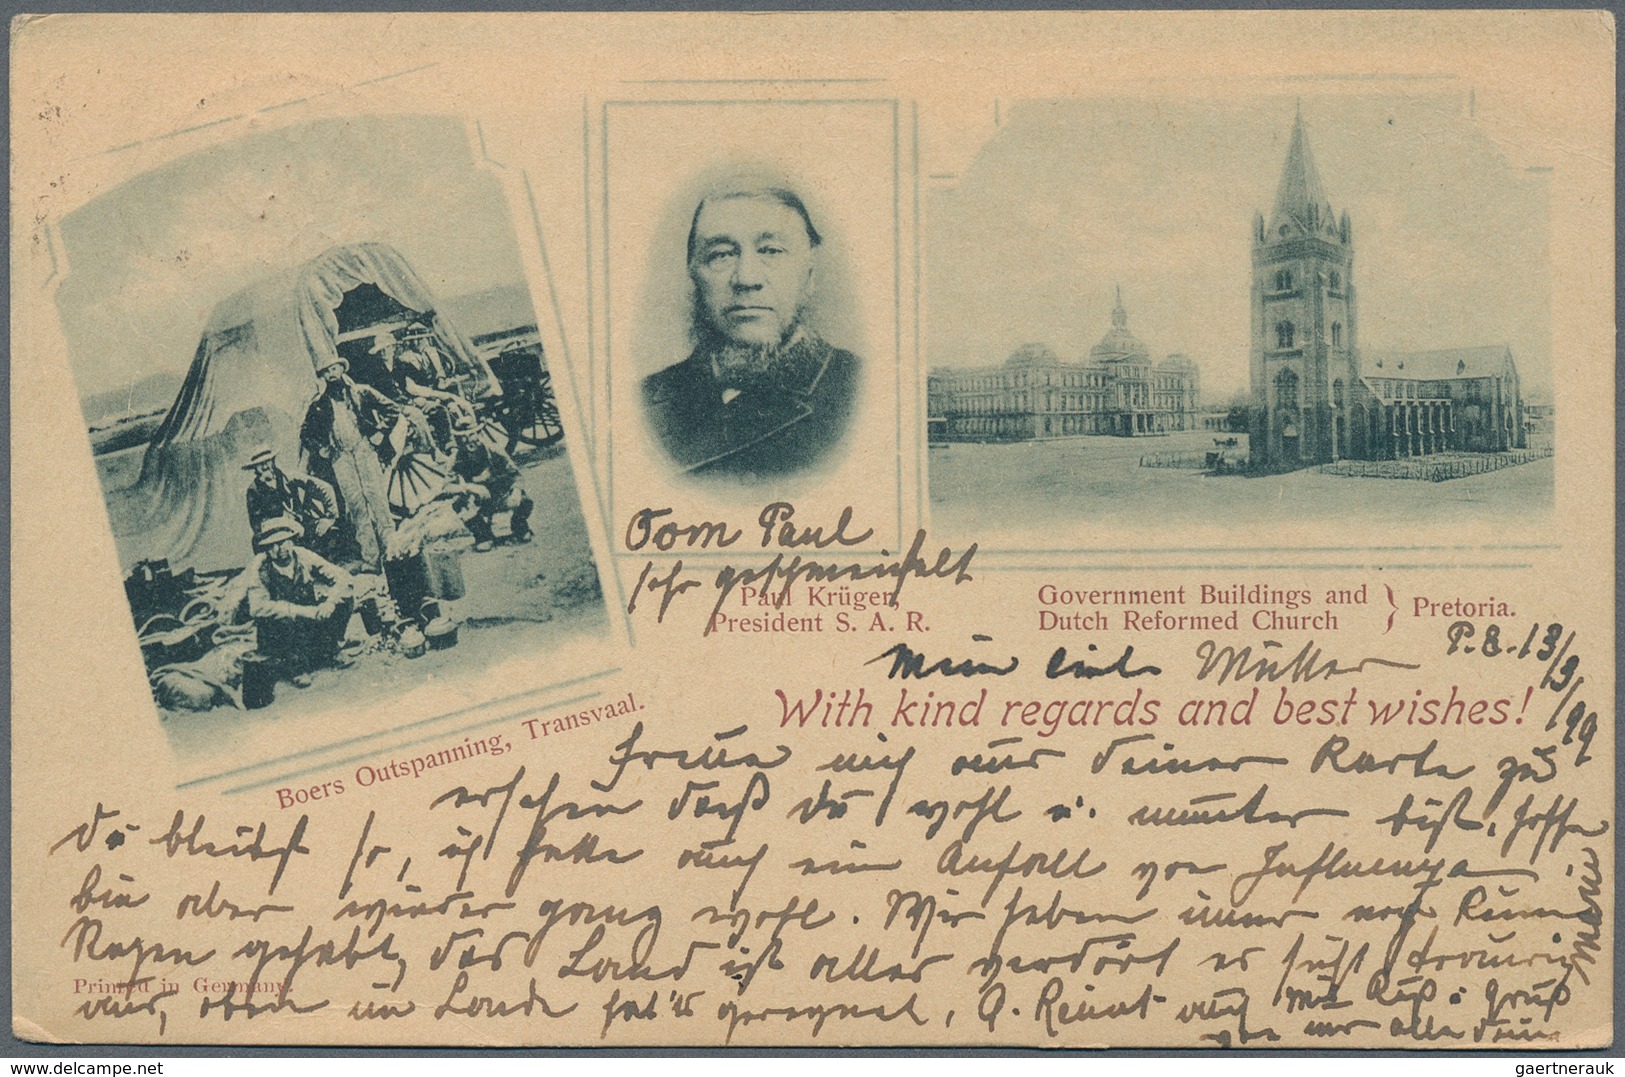 Oom Paul
sehr geschmeichelt
Paul Krüger,
President S. A. R.
Government Buildings and
Dutch Reformed Church } Pretoria.
P. E. 13/9/99
Mein lieb Mutter
With kind regards and best wishes!
Boers Outspanning, Transvaal.
Freue mich aus deiner Karte zu
ersehen daß du wohl u. munter bist, hoffe
du bleibst so, ich hatte auch ein Anfall von Influenza
bin aber wieder ganz wohl. Wir haben immer noch kein
Regen gehabt, das Land ist alles verdört es sieht traurig
aus, oben im Lande hat's geregnet,
Mit Kuß u Gruß
von uns alle dein
Printed in Germany.
delcampe.net
gaertnerauk